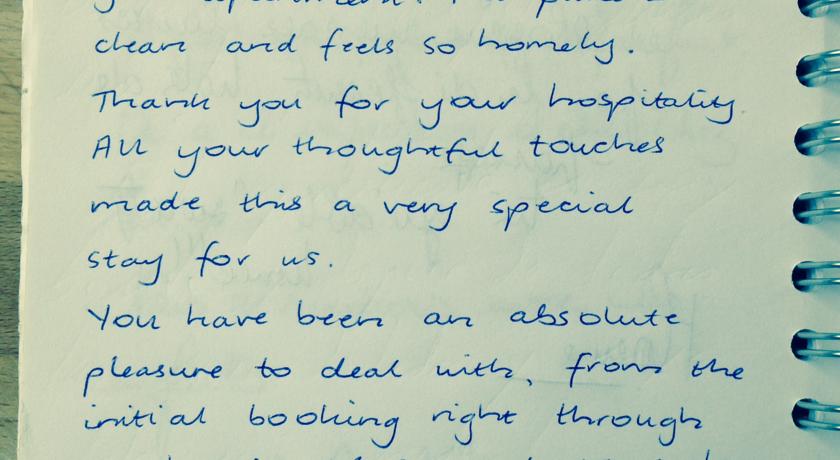 clean and feels so homely.
Thank you for your hospitality.
All your thoughtful touches
made this a very special
stay for us.
You have been an absolute
pleasure to deal with, from the
initial booking right through